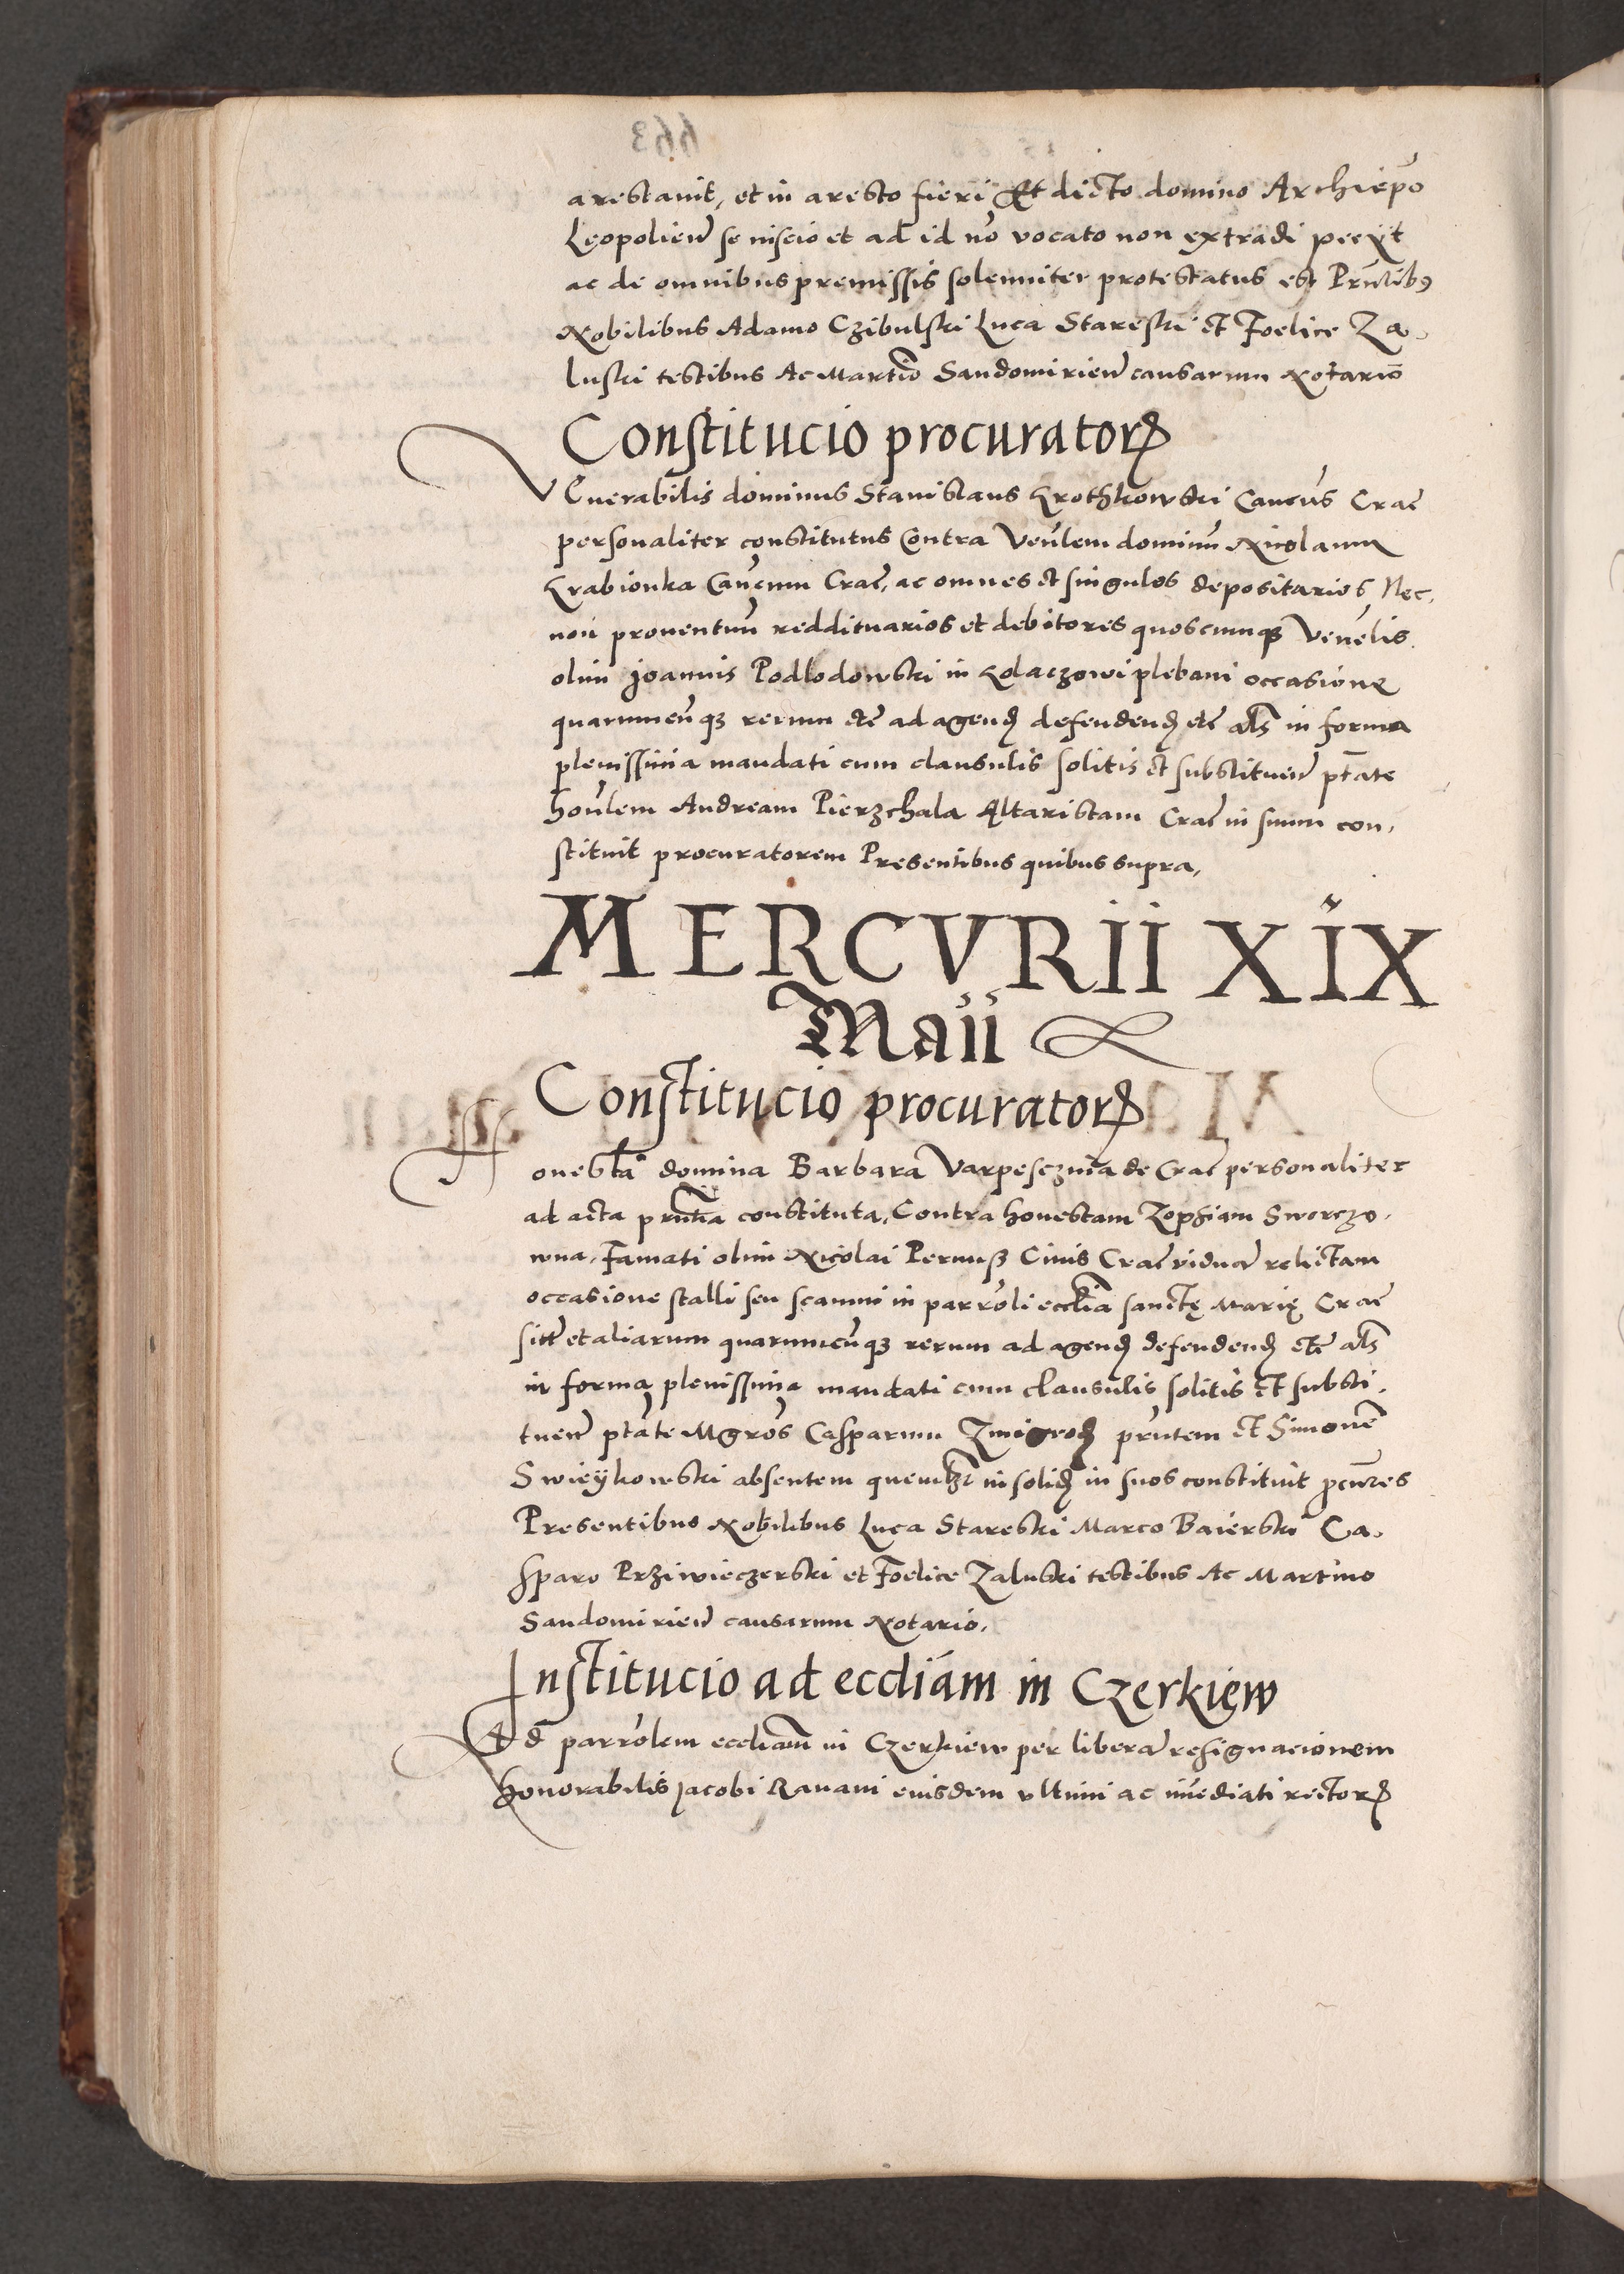 arestauit, et in aresto fieri Et dicto domino Archiep̃o
Leopolieñ se inscio et ad id nõ vocato non extradi pecyt
ac de omnibus premissis solemniter protestatus est Pñtibꝰ
Nobilibus Adamo Czibulski Luca Stareski et Foelice Za,
luski testibus Ac Martiõ Sandomirieñ causarum Notariõ
Constitucio procuratorꝭ
VEnerabilis dominus Stanislaus Krothkowski Cancũs Crac̃
personaliter constitutus Contra Veñlem dominũ Nicolaum
Krabionka Cañcum Crac̃, ac omnes et singulos depositarios Nec,
non prouentuũ reddituarios et debitores quoscumqꝫ Veñelis
olim Joannis Podlodowski in Kolaczowi plebani occasione
quarumcũqꝫ rerum etc̃ ad agendꝭ defendendꝭ etc̃ als̃ in forma
plenissima mandati cum clausulis solitis et substitueñ ptãte
hoñlem Andream Pierzchala Altaristam Crac̃ in suum con,
stituit procuratorem Presentibus quibus supra,
MERCVRII XIX
Maii
Constitucio procuratorꝭ
Honesta domina Barbara Varpesczina de Crac̃ personaliter
ad acta pñtia constituta, Contra honestam Zophiam Sworczo,
wna, Famati olim Nicolai Pernusz Ciuis Crac̃ viduã relictam
occasione stalli seu scamni in parrõli ecclĩa sanctę Marię Crac̃
sitĩ et aliarum quarumcũqꝫ rerum ad agendꝭ defendendꝭ etc̃ als̃
in forma plenissima mandati cum clausulis solitis et substi,
tueñ ptãte Mgrõs Casparum Zmigrodꝭ pñtem et Simonẽ
Swieykowski absentem quemlꝫ insolidꝭ in suos constituit pcũres
Presentibus Nobilibus Luca Stareski Marco Baierski Ca,
sparo Przi wieczerski et Foelice Zaluski testibus Ac Martino
Sandomirieñ causarum Notario,
Institucio ad eccliam in Czerkiew
Ad parrõlem eccliam in Czerkiew per liberã resignacionem
honorabilis Jacobi Rauani eiusdem vltimi ac im̃ediati rectorꝭ